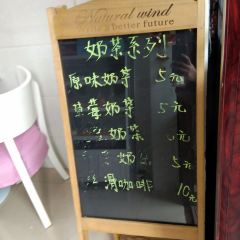 Natural wind
a better future
奶茶系列
原味奶茶 5元
草莓奶茶 5元
奶茶 元
奶 5元
丝滑咖啡 10元